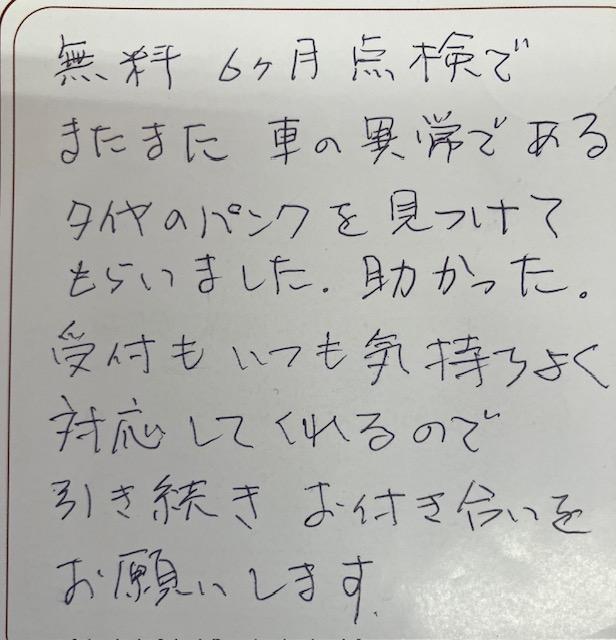 無料 6ヶ月点検で
またまた 車の異常である
タイヤのパンクを見つけて
もらいました. 助かった。
受付もいつも気持ちよく
対応してくれるので
引き続き お付き合いを
お願いします.